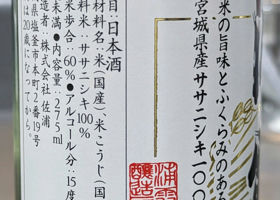 米の旨味とふくらみのある
宮城県産ササニシキ100
目・日本酒
材料名・米(国産)、米こうじ(国
料米・ササニシキ100%
米歩合・60%●アルコール分・15度
満●内容量・275ml
者・株式会社 佐浦
県塩釜市本町2番19号
は20歳になってから。
浦霞
醸造